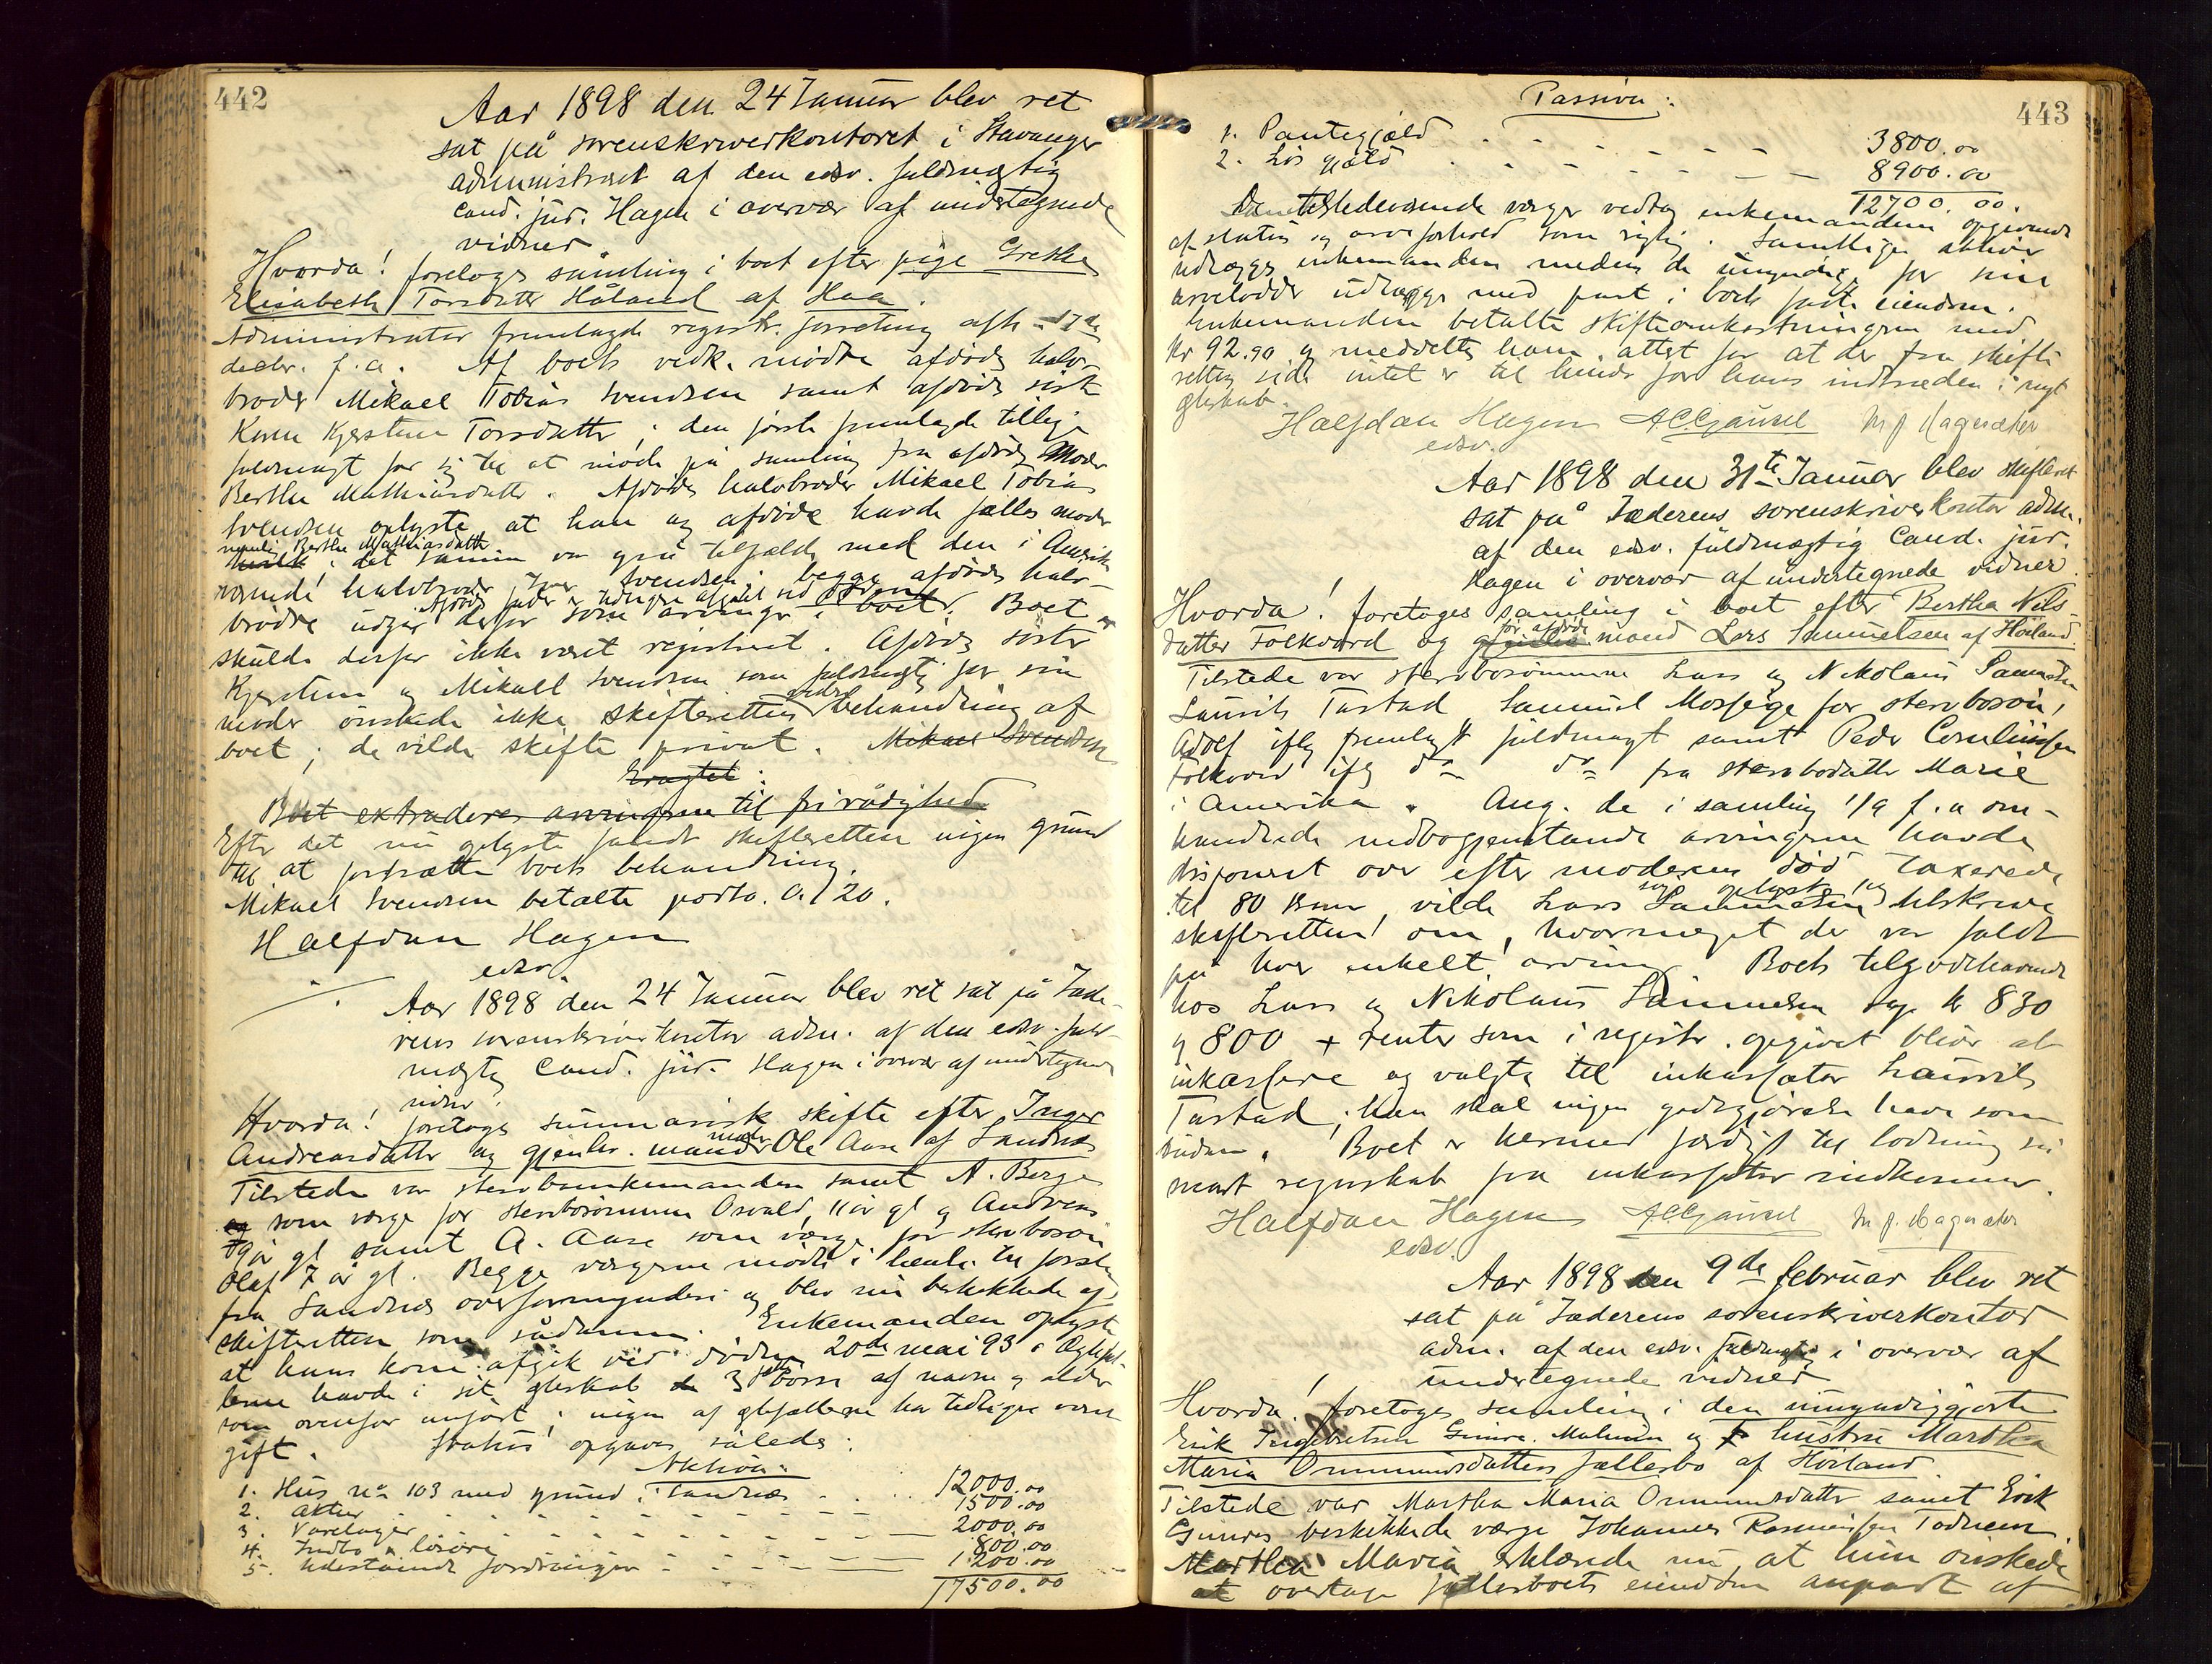 442
Aar 1898 den 24 Januar blev ret
sat på sorenskriverkontoret i Stavanger
administreret af den edsv. fuldmægtig
cand. jur. Hagen i overvær af undertegnede
vidner.
Hvorda! foretoges samling i boet efter pige Grethe
Elisabeth Torsdatter Håland af Haa.
Administrator fremlagde registr. forretning afh. 17de
decbr. f.a. Af boets vedk. mødte afdødes halv-
broder Mikael Tobias Svendsen samt afdødes søster
Karen Kjerstine Torsdatter; den første fremlagde tillige
fuldmagt for sig til at møde på samling fra afdødes Moder
Berthe Mathiasdatter. Afdødes halvbroder Mikael Tobias
Svendsen oplyste, at han og afdøde havde fælles moder
nemlig Berthe Mathiasdatter
; det samme var også tilfælde med den i Amerika
værende halvbroder Iver Svendsen; begge afdødes halv-
Afdødes fader er tidligere afgået ved døden
brødre udgjør derfor som arvinger i boet. Boet
skulde derfor ikke været registreret. Afdødes søster
Kjerstine og Mikael Svendsen som fuldmægtig for sin
moder ønskede ikke skifterettens behandling af
boet; de vilde skifte privat. Mikael Svendsen
Eragtet:
Boet extraderes arvingerne til fri rådighed
Efter det nu oplyste fandt skifteretten ingen grund
til at fortsætte boets behandling.
Mikael Svendsen betalte porto. 0.20.
Halfdan Hagen
edsv.
Aar 1898 den 24 Januar blev ret sat på Jæde-
rens sorenskriverkontor adm. af den edsv. fuld-
mægtig Cand. jur. Hagen i overvær af undertegnede
vidner.
Hvorda! foretoges summarisk skifte efter Inger
Andreasdatter og gjenlev. mand Ole Aase af Sandnæs
Tilstede var stervboenkemanden samt A. Berge
som værge for stervbosønnerne Osvald, 11 år gl og Andreas
9 år gl samt A. Aase som værge for stervbosøn
Olaf 7 år gl. Begge værgerne mødte i henh. til forslag
fra Sandnæs overformynderi og blev nu beskikkede af
skifteretten som sådanne. Enkemanden oplyste
at hans kone afgik ved døden 20de mai 93. Ægtefol-
kene havde i sit ægteskab 3 børn af navne og alder
som ovenfor anført; ingen af ægtefællerne har tidligere været
gift. Status opgaves således:
Aktiva:
1. Hus no 103 med grund i Sandnæs 12000.00
2. Aktier 1500.00
3. Varelager 2000.00
4. Indbo & løsøre 800.00
5. Udestående fordringer 1200.00
17500.00
443
Passiva:
1. Pantegjæld 3800.00
2. Løs gjæld 8900.00
12700.00.
De tilstedeværende værger vedtog enkemandens opgivende
af status og arveforhold som rigtig. Samtlige aktiver
udlægges enkemanden medens de umyndige for sine
arvelodder udlægges med pant i boets faste eiendom.
Enkemanden betalte skifteomkostningerne med
Kr 92.90 og meddeltes ham attest for at der fra skifte
rettens side intet er til hinder for hans indtræden i nyt
ægteskab.
Halfdan Hagen
edsv.
Aar 1898 den 31te Januar blev skifteret
sat på Jæderens sorenskriverkontor adm.
af den edsv. fuldmægtig Cand. jur.
Hagen i overvær af undertegnede vidner.
Hvorda! foretoges samling i boet efter Berthe Nils-
datter Folkvord og før afdøde mand Lars Samuelsen af Høiland.
Tilstede var stervbosønnerne Lars og Nikolaus Samuelsen
Laurits Tastad Samuel Mossige for stervbosøn
Adolf iflg fremlagt fuldmagt samt Peder Corneliussen
Folkvord iflg do do fra stervbodatter Marie
i Amerika. Ang. de i samling 1/9 f.a om-
handlede indbogjenstande arvingerne havde
disponeret over efter moderens død taxerede
til 80 kroner, vilde Lars Samuelsen tilskrive
skifteretten om, hvormeget der var faldt
på hver enkelt arving. Boets tilgodehavende
hos Lars og Nikolaus Samuelsen kr 830
og 800 + renter som i registr. opgivet bliver at
inkassere og valgte til inkassator Laurits
Tastad; han skal ingen godtgjørelse have som
sådan. Boet er hermed færdigt til lodning så
snart regnskab fra inkassator indkommer.
Halfdan Hagen
edsv.
Aar 1898 den 9de februar blev ret
sat på Jæderens sorenskriverkontor
adm. af den edsv. fuldmægtig i overvær af
undertegnede vidner
Hvorda! foretoges samling i den umyndiggjorte
Erik Ingebretsen Gimre Malmin og hustru Martha
Maria Ommundsdatters fællesbo af Høiland
Tilstede var Martha Maria Ommundsdatter samt Erik
Gimres beskikkede værge Johannes Rasmussen Todnem.
Martha Maria erklærede nu, at hun ønskede
at overtage fællesboets eiendom anpart af